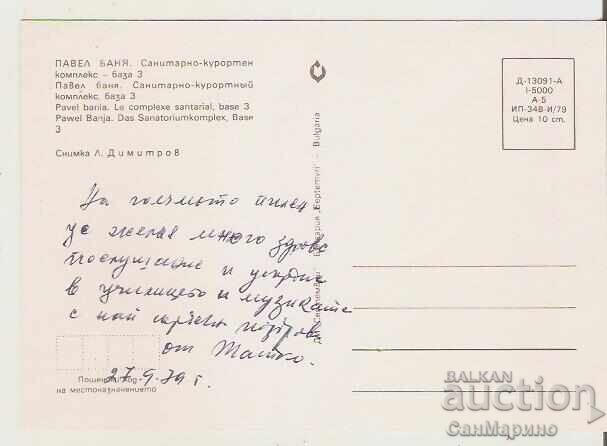 ПАВЕЛ БАНЯ. Санитарно-курортен
комплекс – база 3
Павел баня. Санитарно-курортный
комплекс, база 3
Pavel bania. Le complexe santarial, base 3
Pawel Banja. Das Sanatoriumkomplex, Base
3
Снимка Л. Димитров
Д-13091-А
I-5000
А-5
ИП-348-И/79
Цена 10 ст.
„Септември" – Bulgaria
На голямото
желае много здраве
послушание и
в училището и музиката
с най поздрави
от Татко.
27.9.79 г.
Пощенски код
на местоназначението
BALKAN
auction
СанМарино